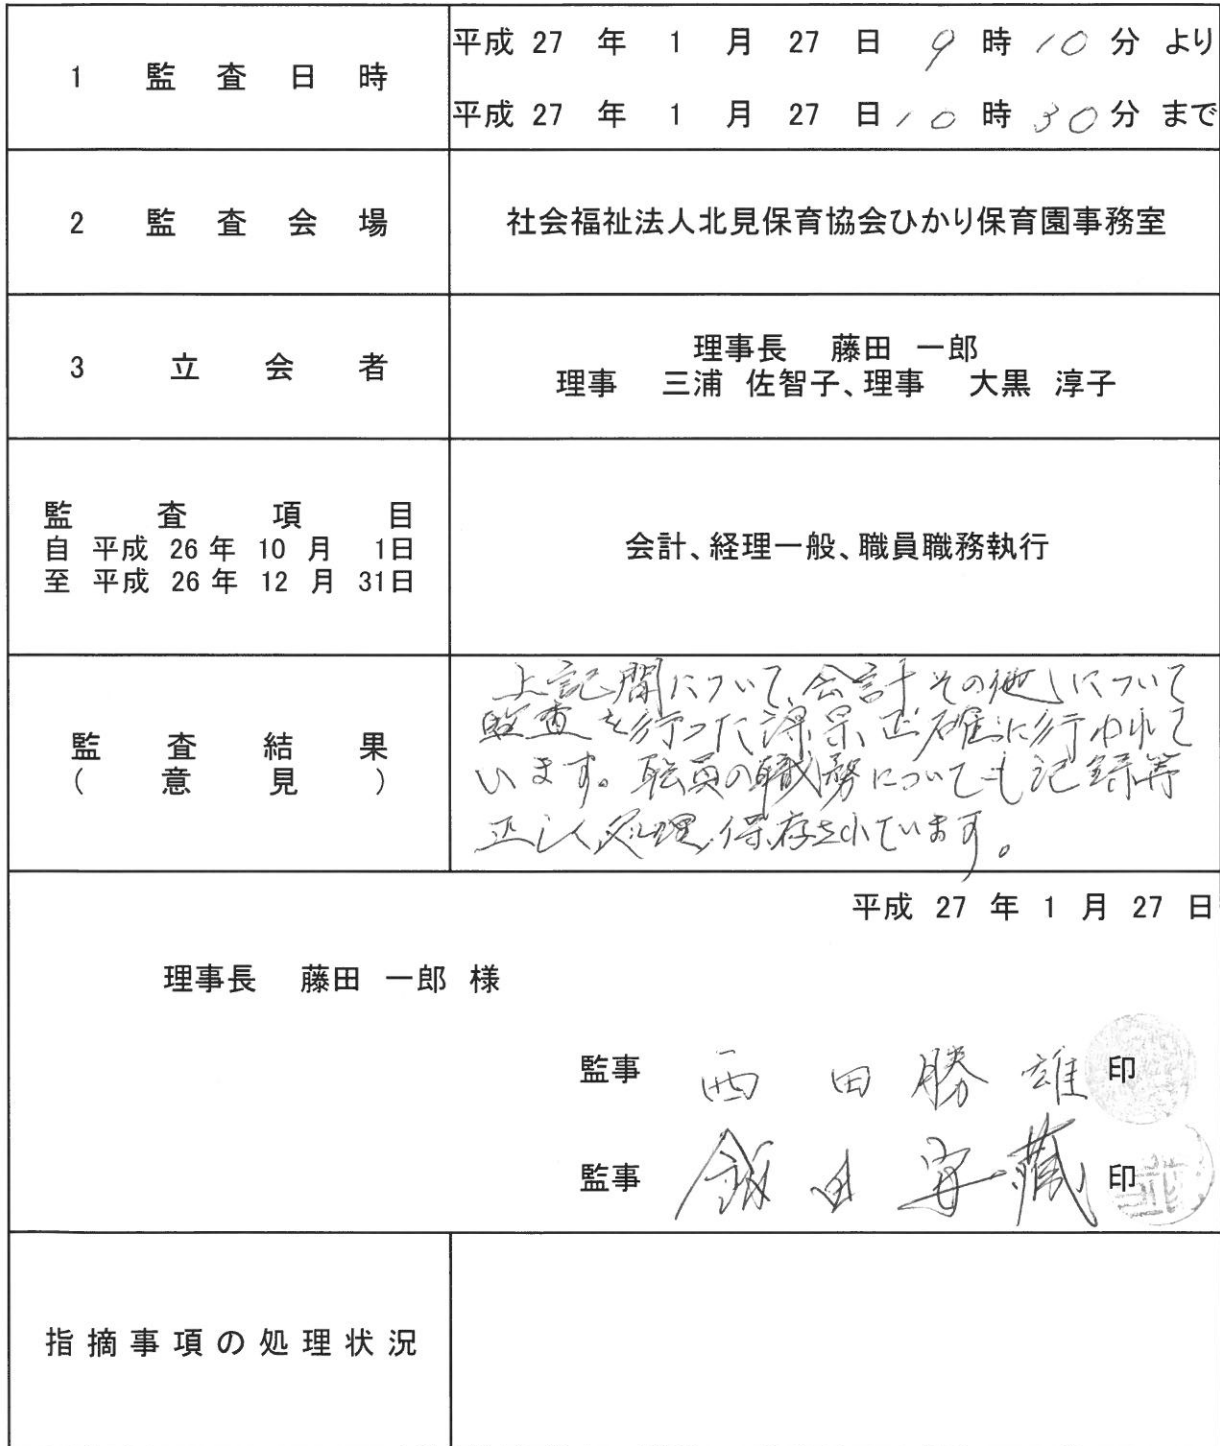 1 監査日時
平成 27 年 1 月 27 日 9 時 10 分 より
平成 27 年 1 月 27 日 10 時 30 分 まで
2 監査会場
社会福祉法人北見保育協会ひかり保育園事務室
3 立会者
理事長 藤田 一郎
理事 三浦 佐智子、理事 大黒 淳子
監査項目
自 平成 26 年 10 月 1日
至 平成 26 年 12 月 31日
会計、経理一般、職員職務執行
監査結果
(意見)
上記間について、会計その他について
監査を行った結果、正確に行われて
います。職員の職務についても記録等
正しく処理、保存されています。
平成 27 年 1 月 27 日
理事長 藤田 一郎 様
監事 西田勝雄 印
監事 飯田 印
指摘事項の処理状況